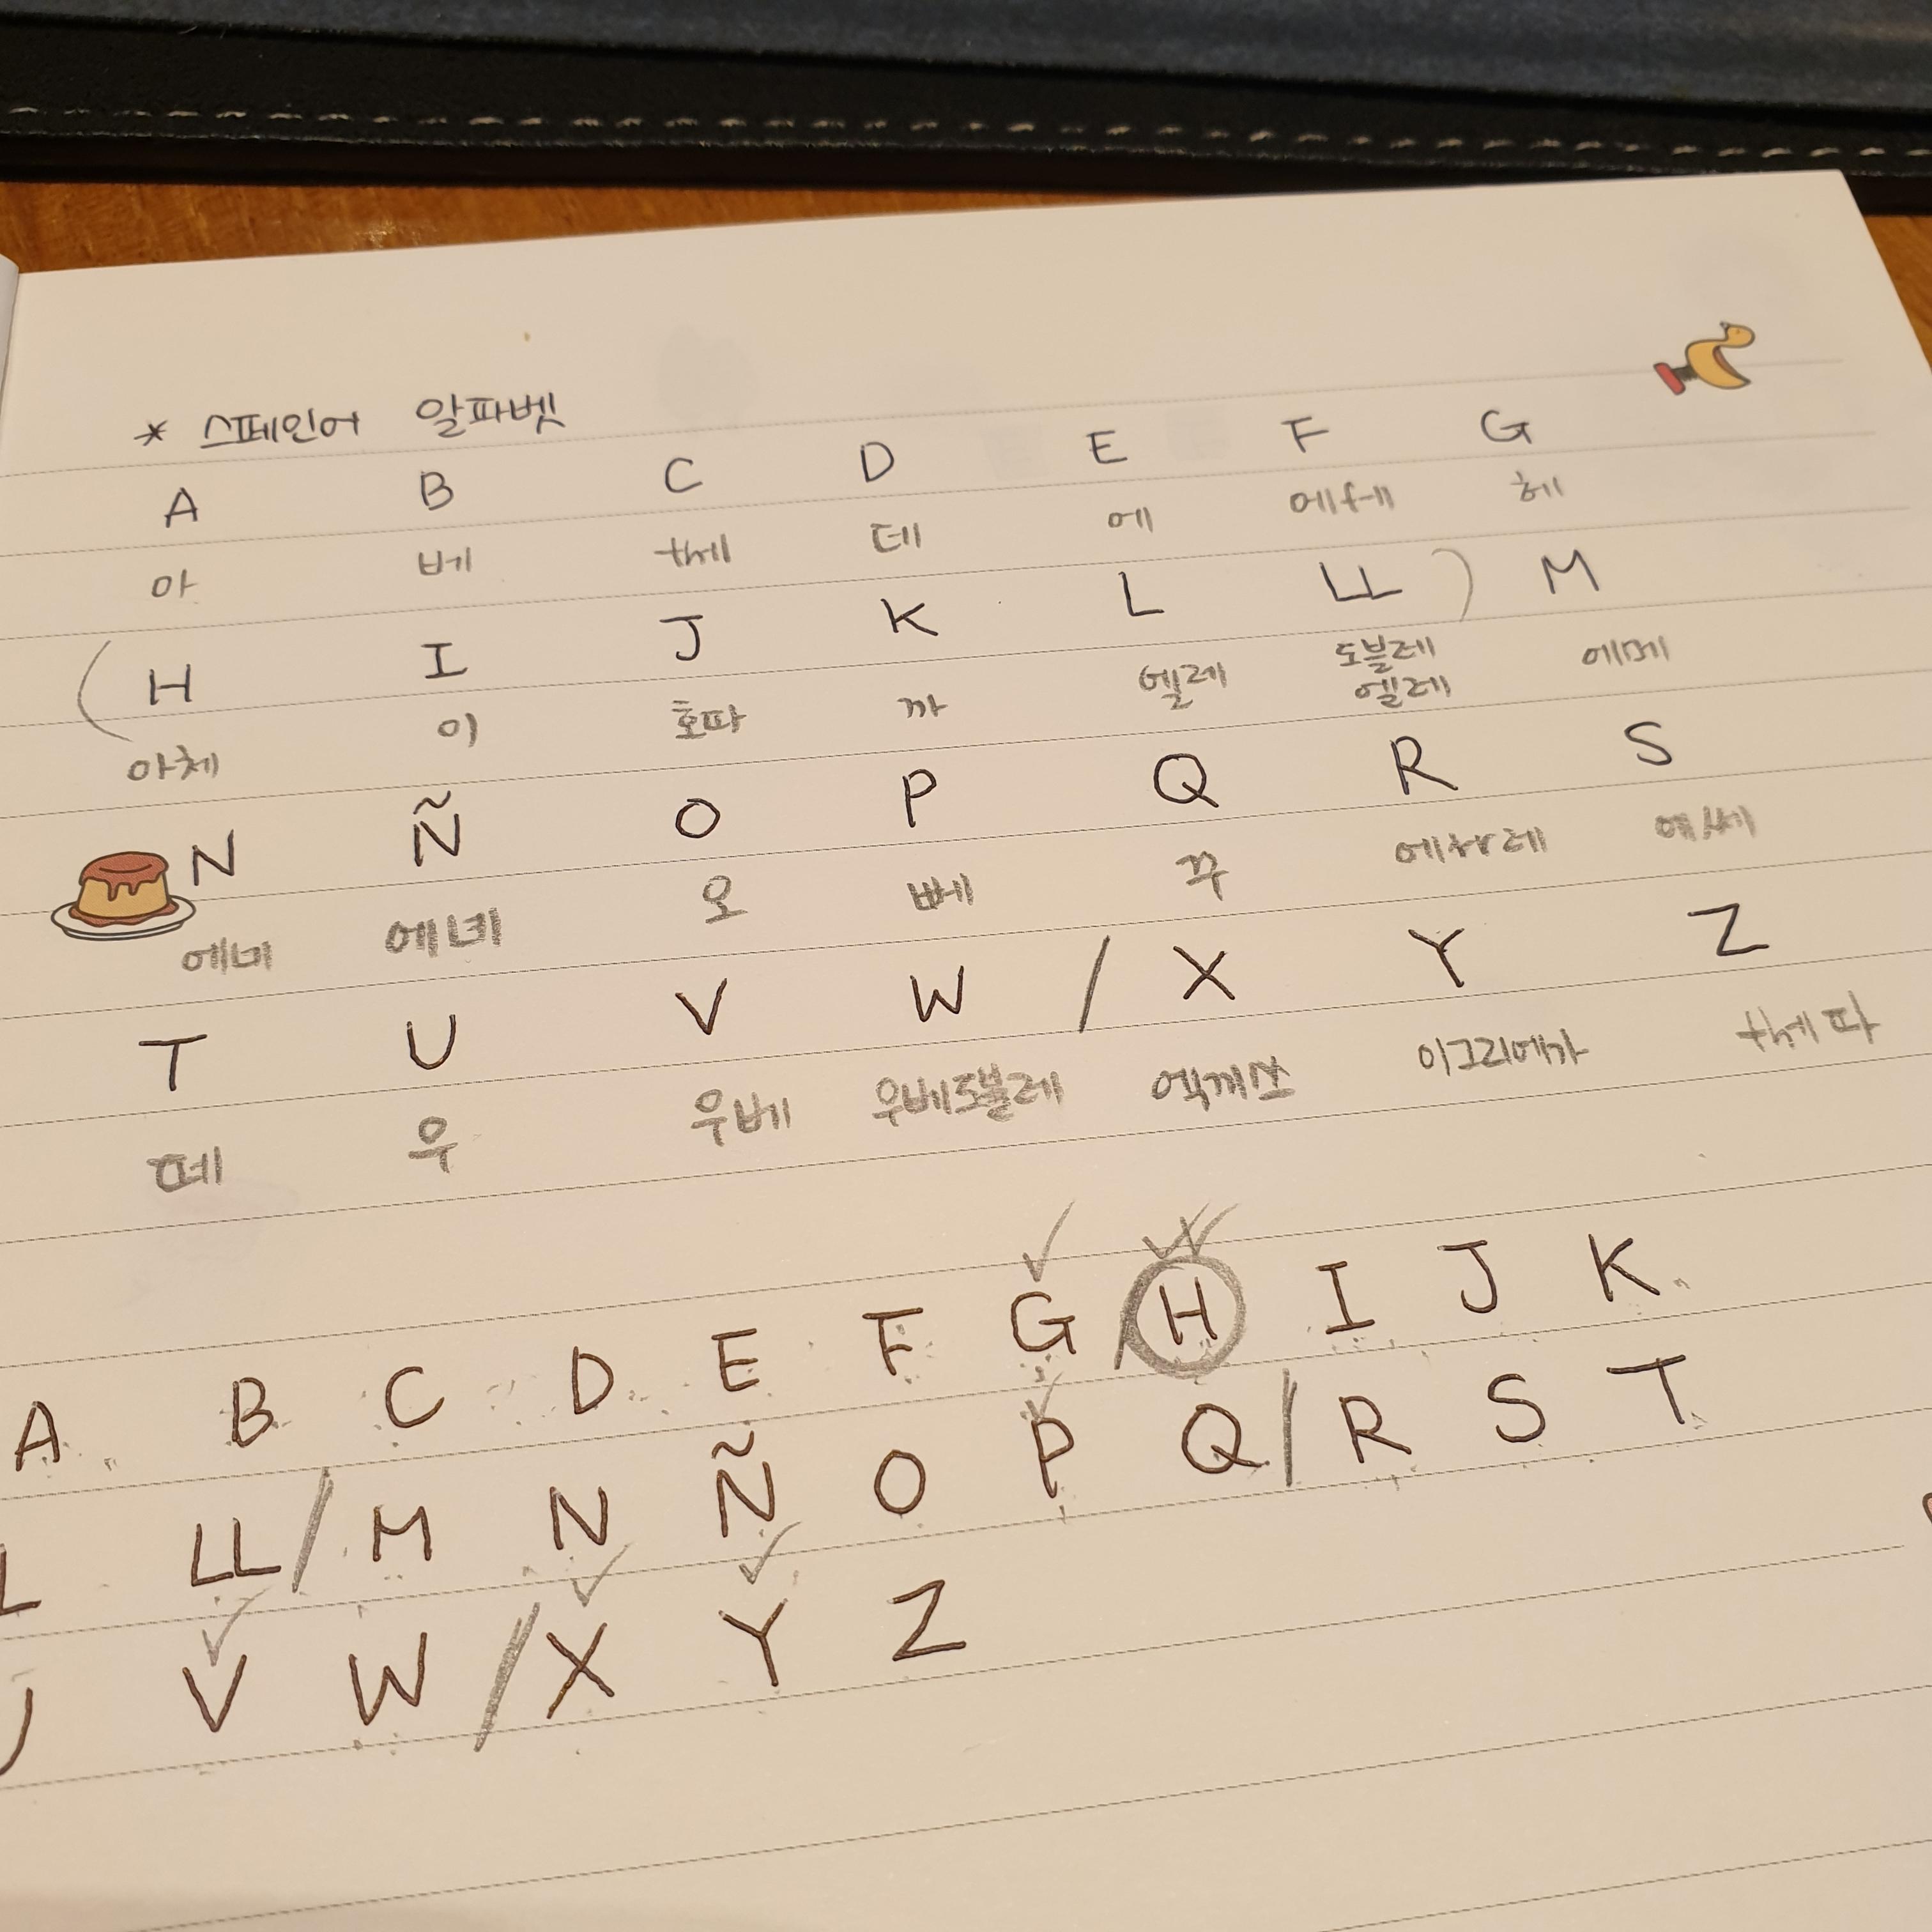 * 스페인어 알파벳
A B C D E F G
아 베 the데 에 에f에 헤
(H I J K L LL) M
아체 이 호따 까 엘레 도블레 엘레 에메
N Ñ O P Q R S
에네 에녜 오 뻬 꾸 에rr레 에쎄
T U V W / X Y Z
떼 우 우베 우베도블레 엑끼쓰 이그리에가 th에따
A B C D E F G / H I J K
L LL / M N Ñ O P Q / R S T
U V W / X Y Z